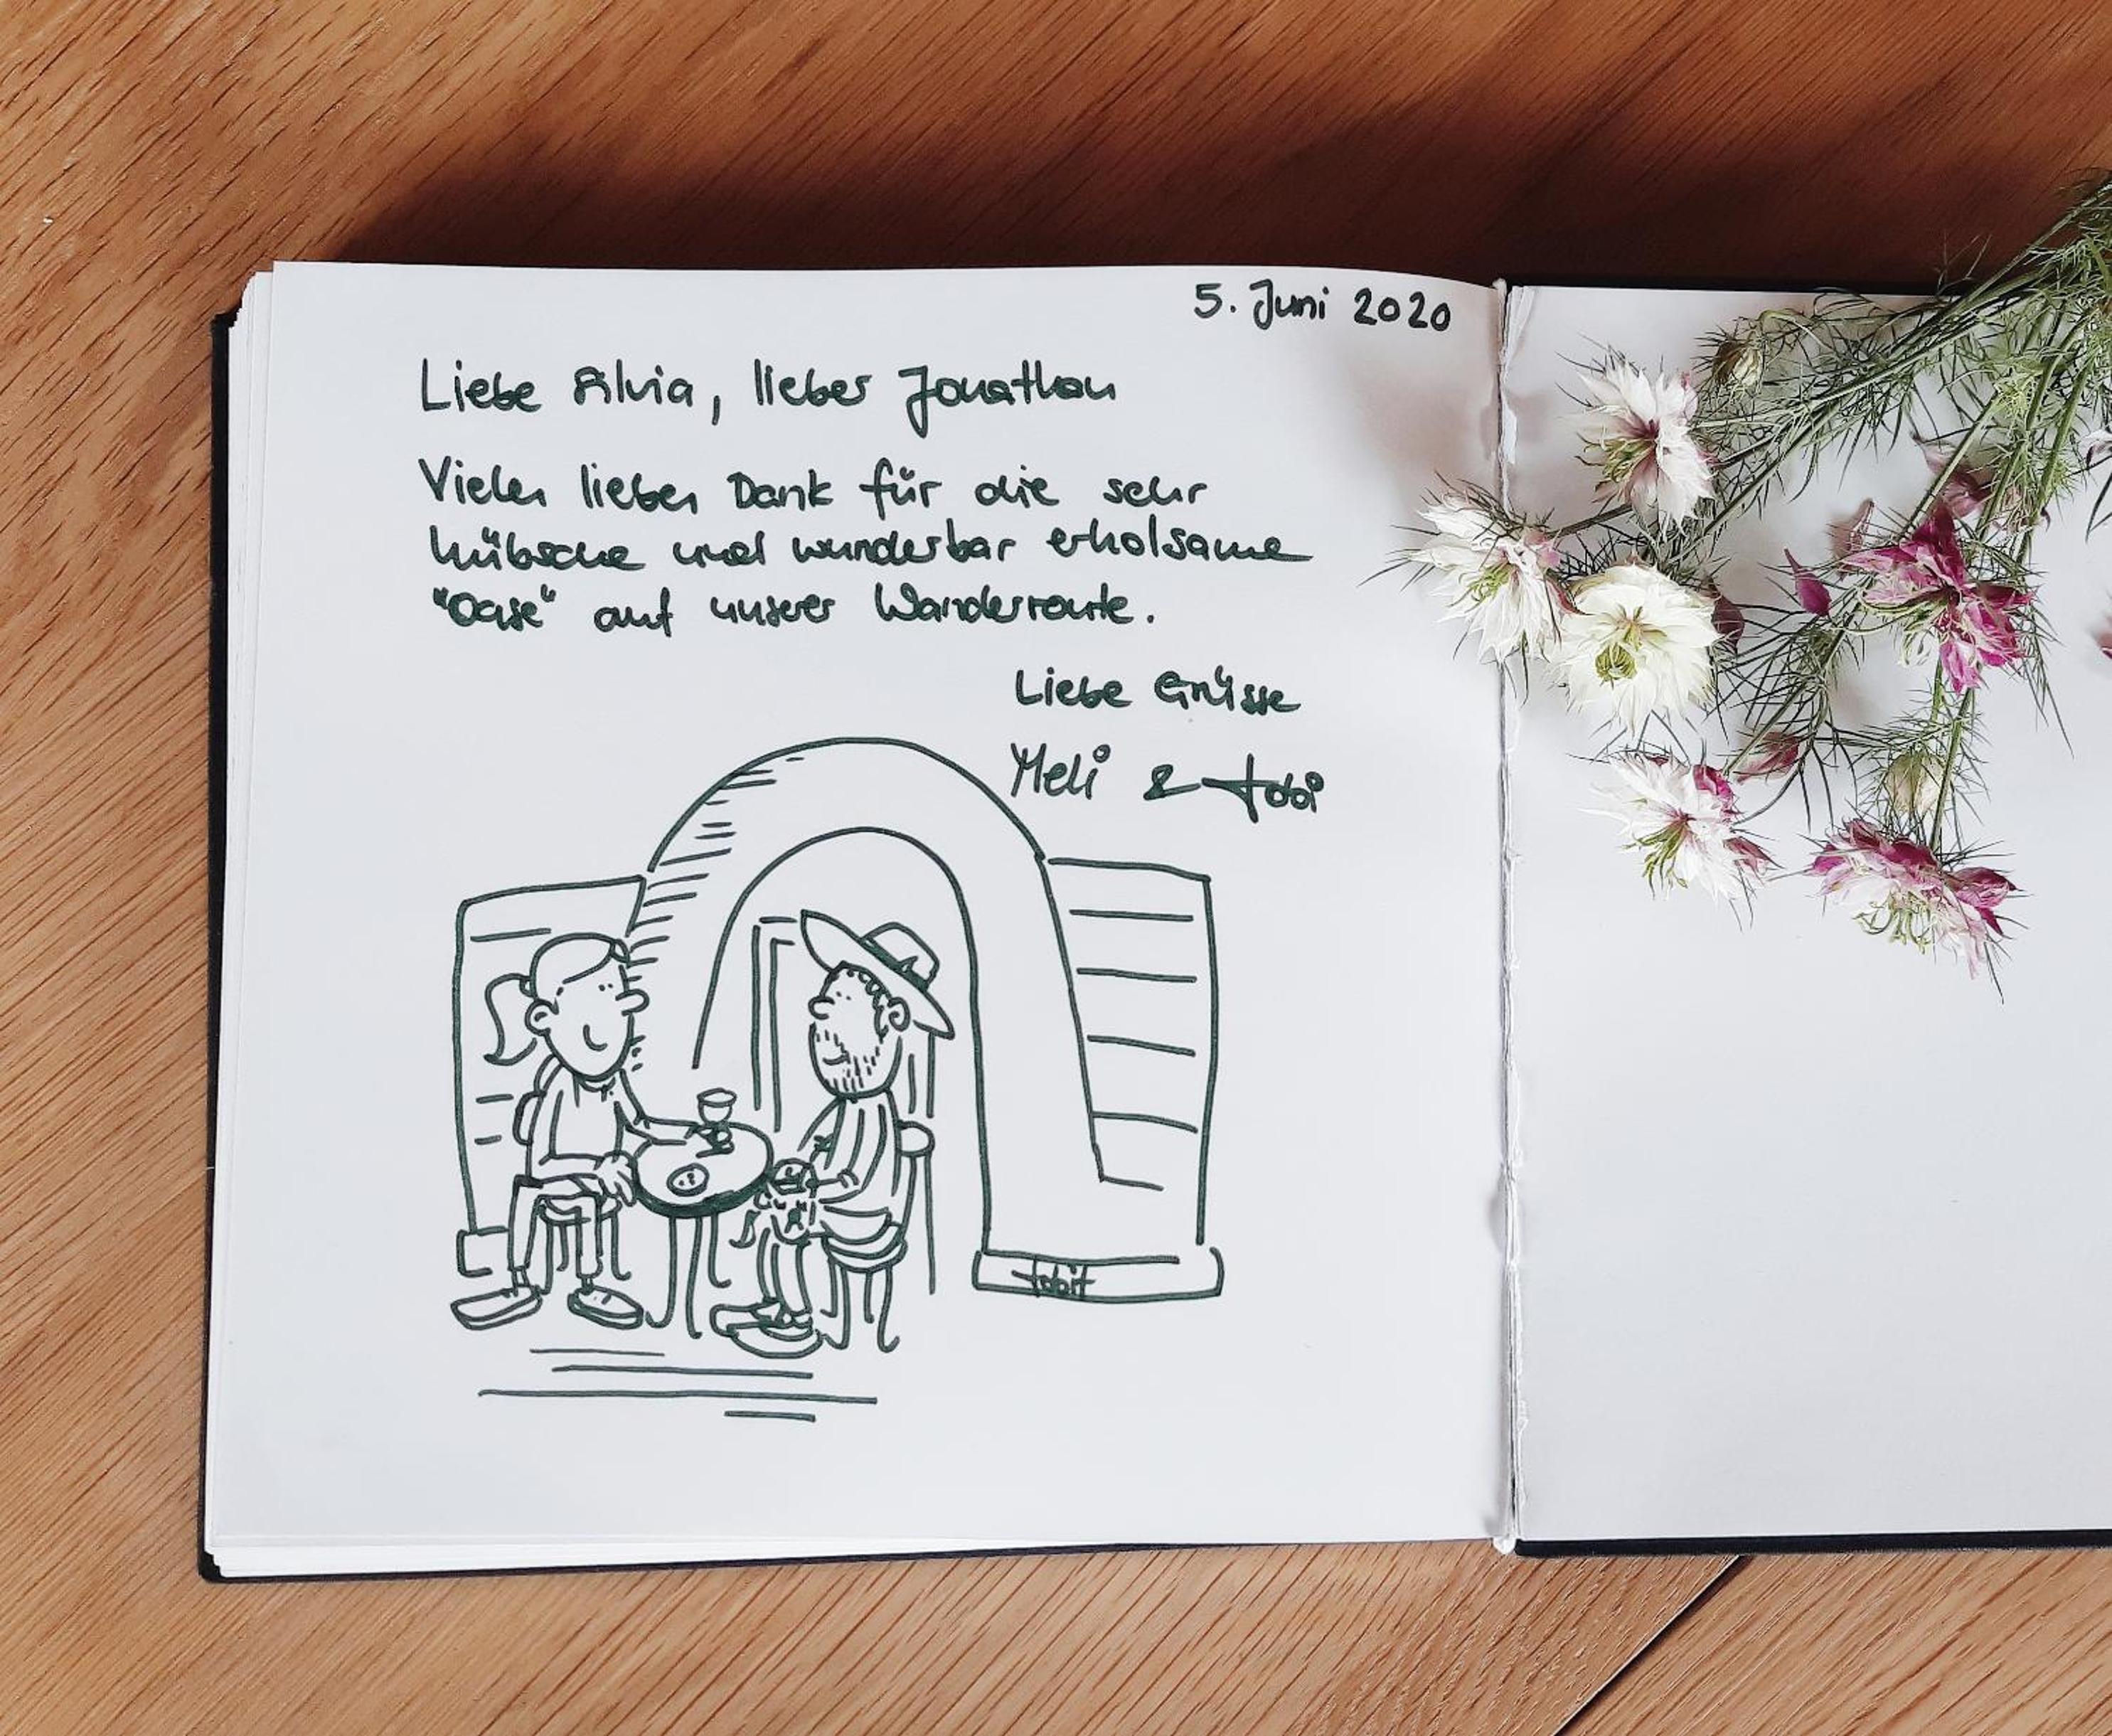 5. Juni 2020
Liebe Silvia, lieber Jonathan
Vielen lieben Dank für die sehr
hübsche und wunderbar erholsame
"Oase" auf unserer Wanderroute.
Liebe Grüsse
Meli & Tobi
tobit